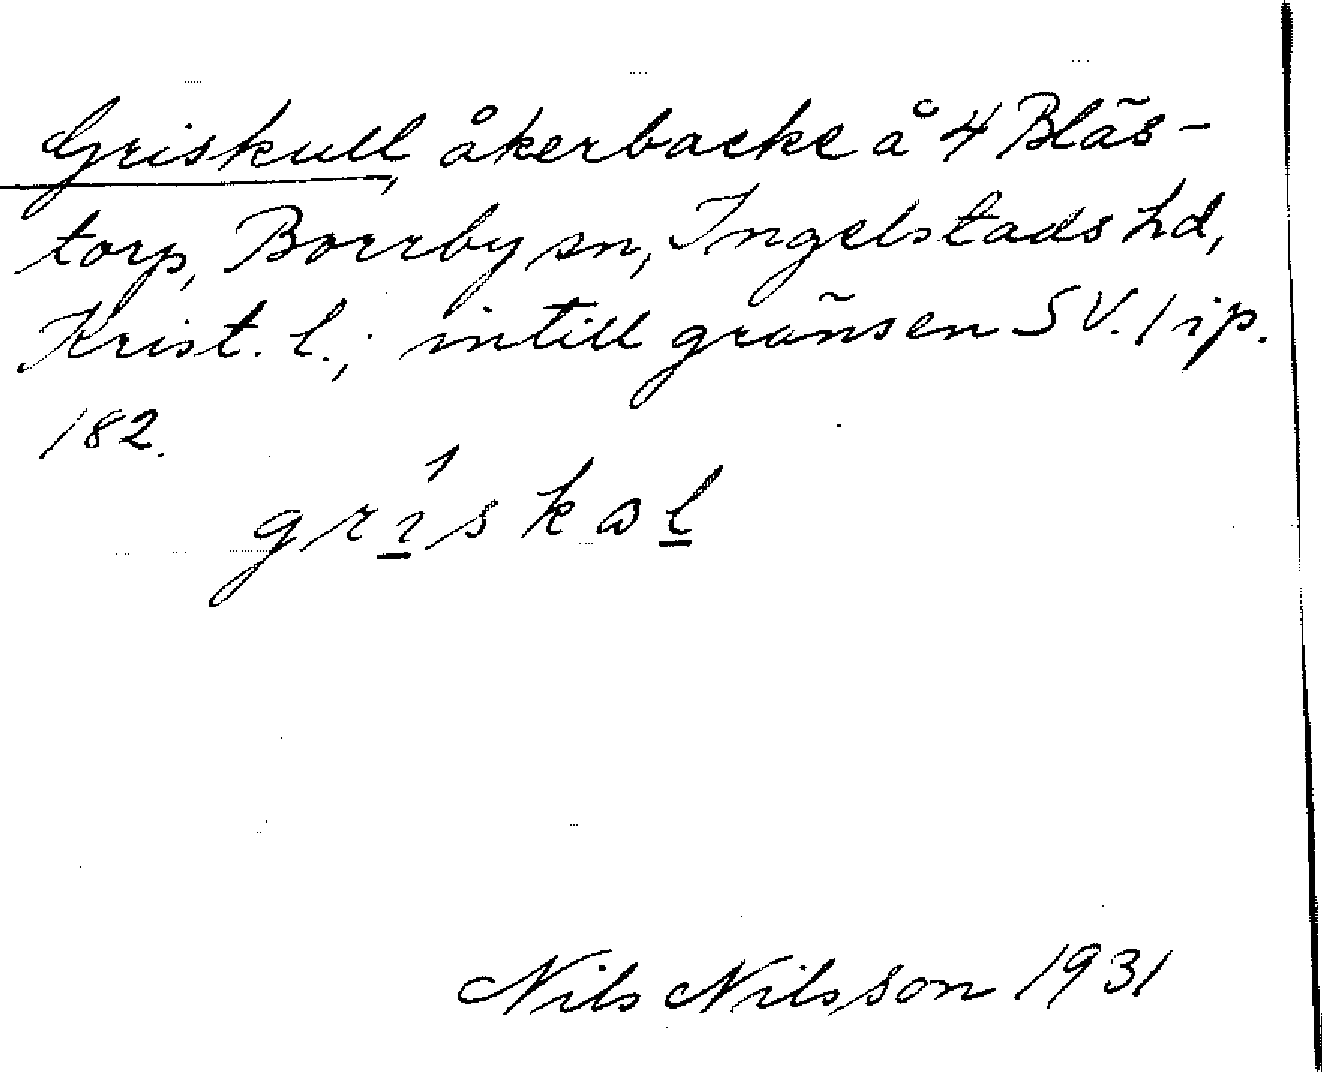 Griskull, åkerbacke å 4 Bläs-
torp, Borrby sn, Ingelstads hd,
Krist. l.; intill gränsen SV. / ip.
182.
Nils Nilsson 1931